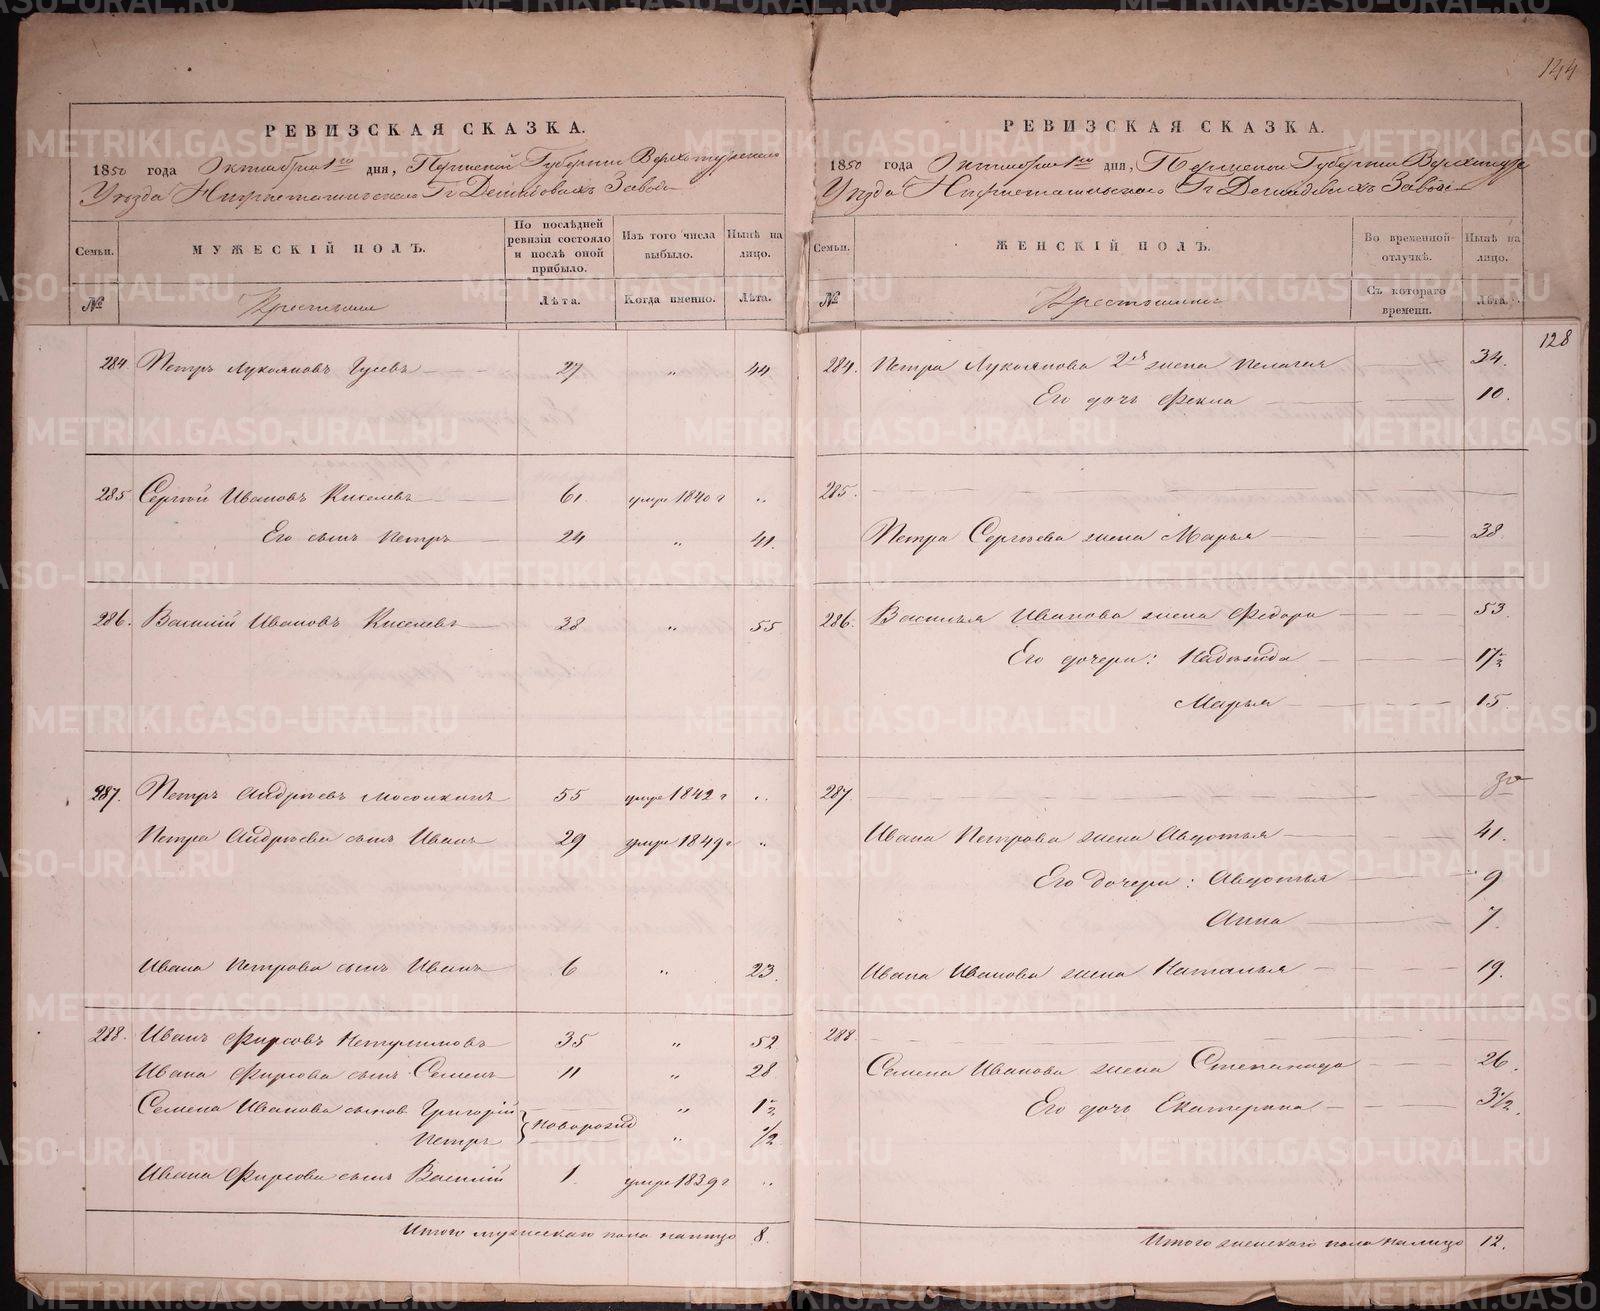 144
РЕВИЗСКАЯ СКАЗКА.
1850 года Октября 1го дня, Пермской Губернии Верхотурскаго
Уѣзда Нижнетагильскаго Гг. Демидовыхъ Завода
Семьи.
МУЖЕСКІЙ ПОЛЪ.
По послѣдней ревизіи состояло и послѣ оной прибыло.
Изъ того числа выбыло.
Нынѣ на лицо.
№
Крестьяне
Лѣта.
Когда именно.
Лѣта.
284. Петръ Лукояновъ Гусевъ 27 „ 44
285. Сергѣй Ивановъ Киселевъ 61 умре 1840 г „
Его сынъ Петръ 24 „ 41.
286. Василій Ивановъ Киселевъ 38 „ 55
287. Петръ Андреевъ Мосолкинъ 55 умре 1842 г „
Петра Андреева сынъ Иванъ 29 умре 1849 г „
Ивана Петрова сынъ Иванъ 6 „ 23.
288. Иванъ Фирсовъ 35 „ 52
Ивана Фирсова сынъ Семенъ 11 „ 28
Семена Иванова сынов. Григорій новорожд „
Петръ „ 1/2
Ивана Фирсова сынъ Василій 1. умре 1839 г „
Итого мужескаго пола налицо 8.
РЕВИЗСКАЯ СКАЗКА.
1850 года Октября 1го дня, Пермской Губернии Верхотурс
Уѣзда Нижнетагильскаго Гг. Демидовыхъ Завода
Семьи.
ЖЕНСКІЙ ПОЛЪ.
Во временной отлучкѣ.
Нынѣ на лицо.
№
Крестьянки
Съ котораго времени.
Лѣта.
128
284. Петра Лукоянова 2я жена Пелагея 34.
Его дочь Фекла 10.
285.
Петра Сергѣева жена Марья 38.
286. Василья Иванова жена Федора 53.
Его дочери: Надежда 17 1/2
Марья 15.
287.
Ивана Петрова жена Авдотья 41.
Его дочери: Авдотья 9
Анна 7.
Ивана Иванова жена Наталья 19.
288.
Семена Иванова жена Степанида 26.
Его дочь Екатерина 3 1/2.
Итого женскаго пола налицо 12.
METRIKI.GASO-URAL.RU